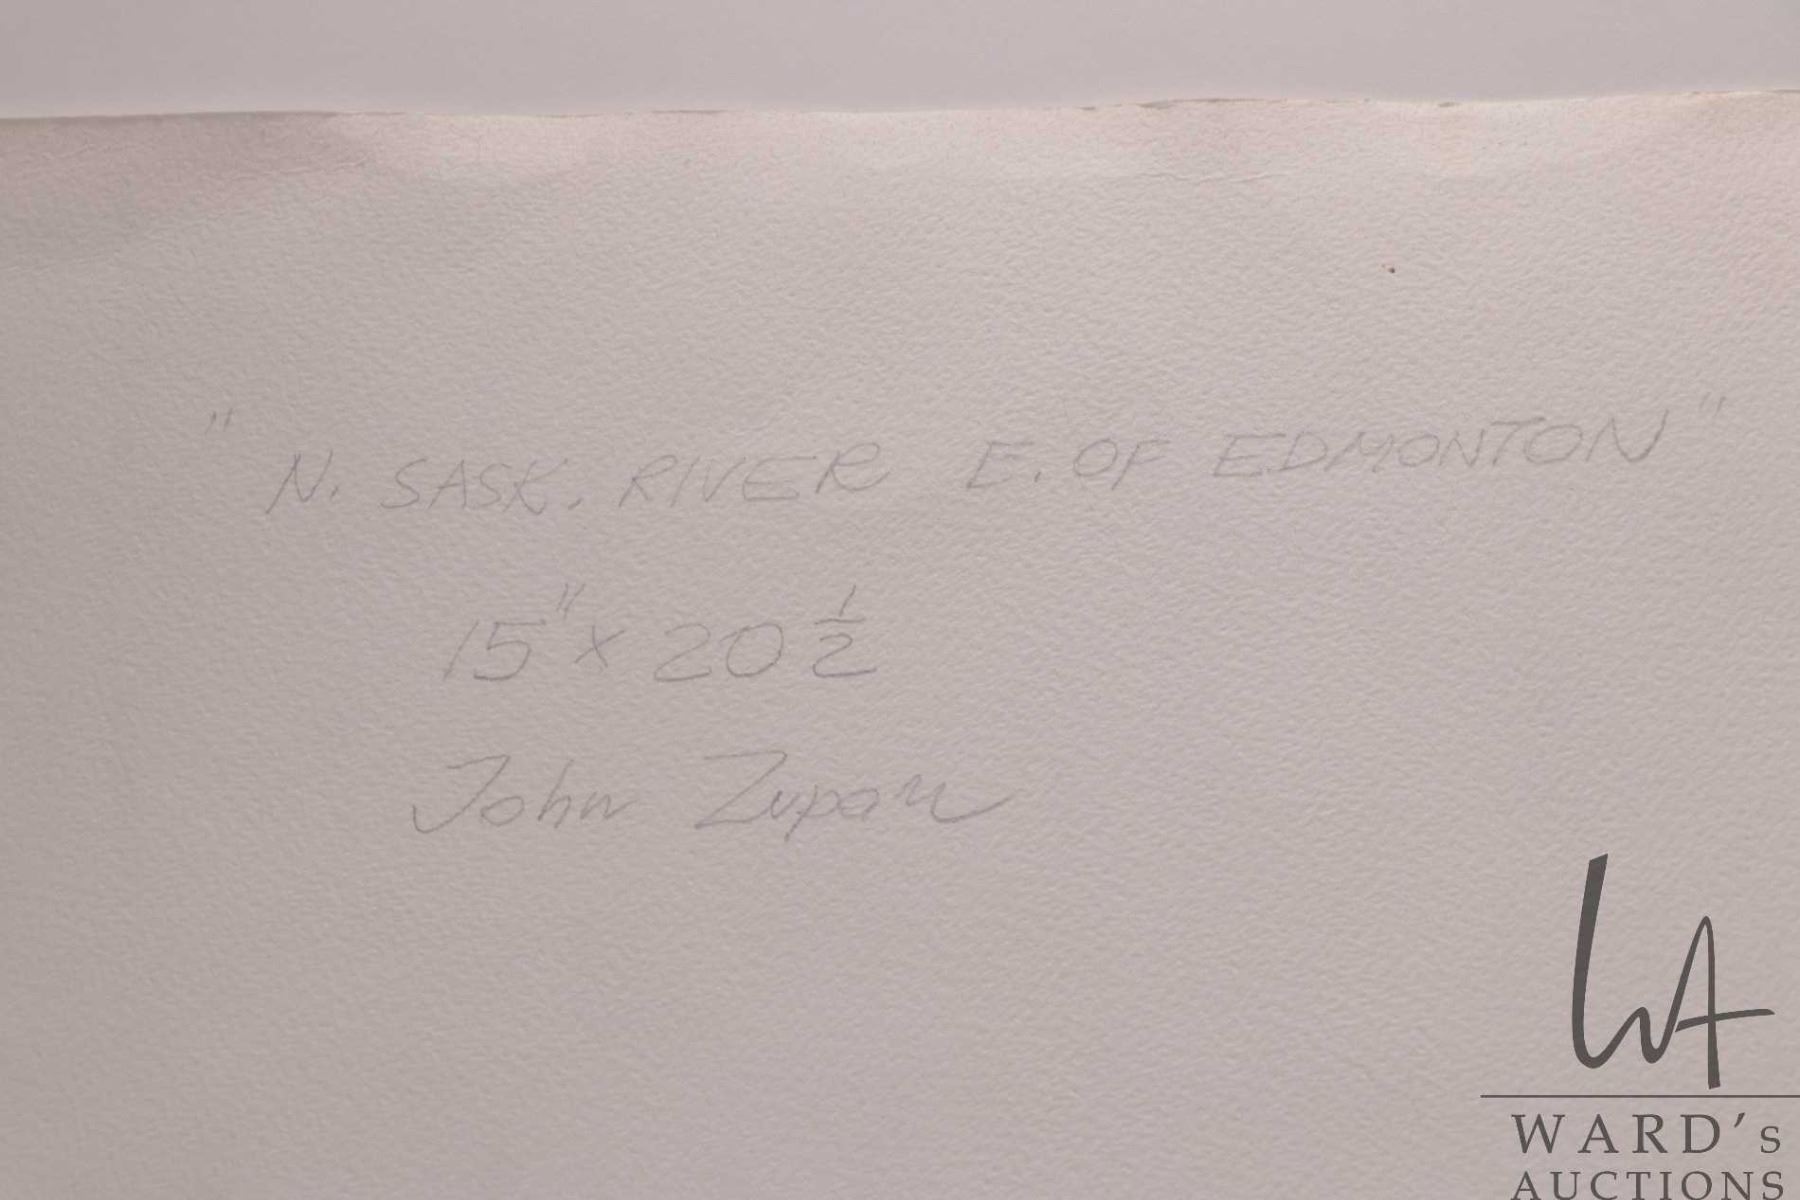 "N. SASK. RIVER E. OF EDMONTON"
15" x 20 1/2
John Zupan
WA
WARD's
AUCTIONS